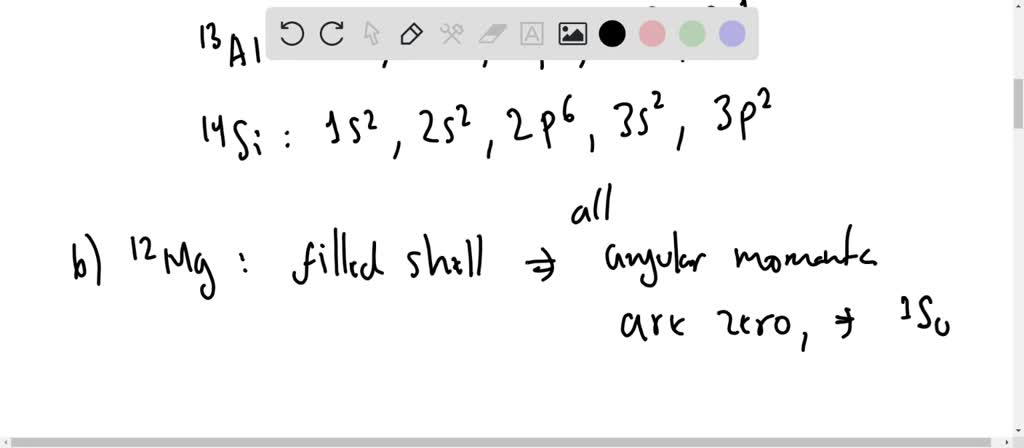 ¹³Al
¹⁴Si : 1s², 2s², 2p⁶, 3s², 3p²
all
b) ¹²Mg : filled shell ⇒ angular momenta
are zero, ⇒ ¹S₀